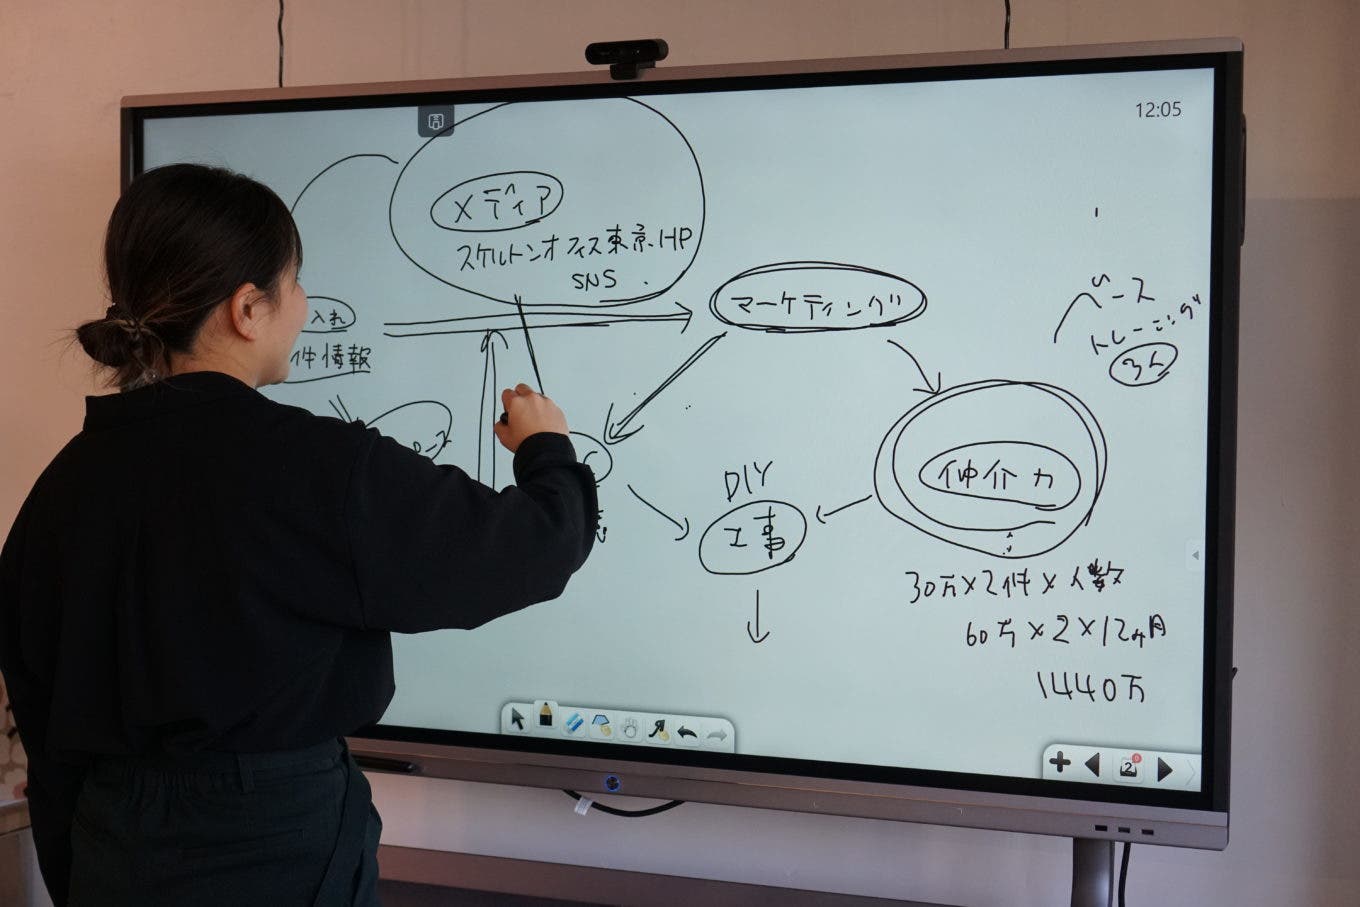 12:05
メディア
スケルトンオフィス東京.HP
SNS
マーケティング
ベース
トレーニング
3人
入れ
件情報
仲介力
DIY
工事
30万×2件×人数
60万×2×12ヶ月
1440万
2